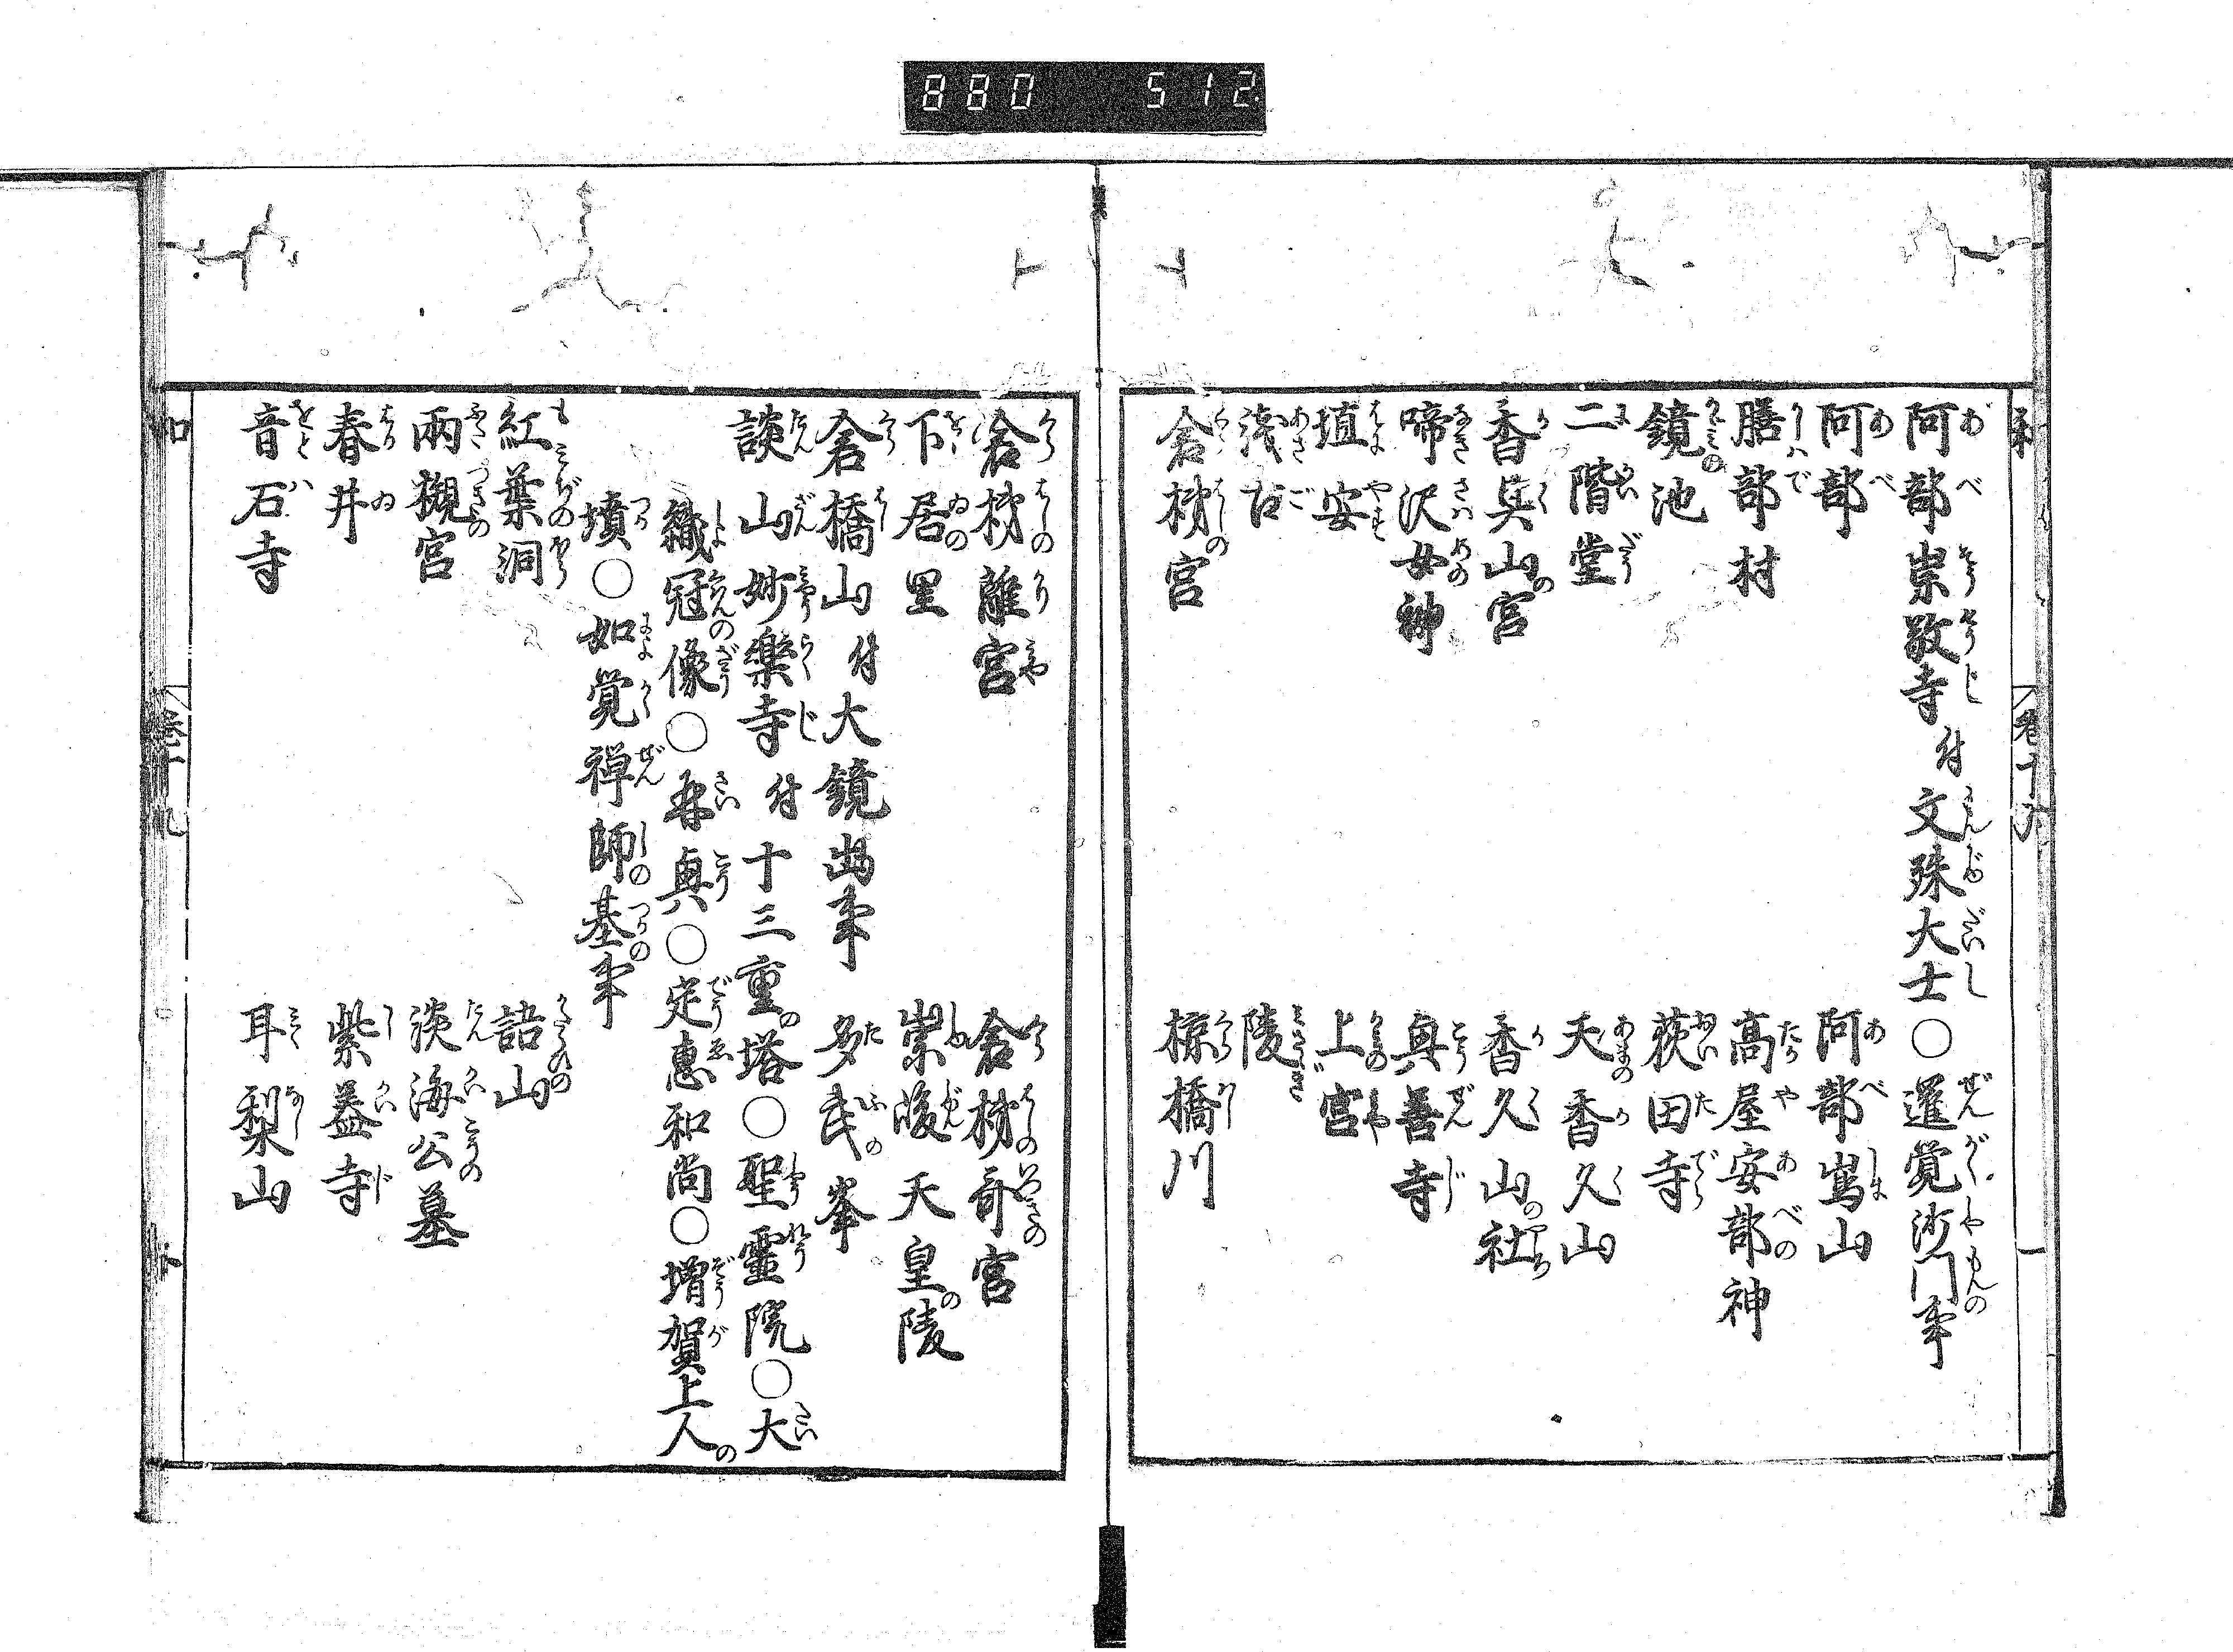 880 512
阿部崇敬寺付文殊大士○暹覚沙門事
阿部　阿部嶌山
膳部村　高屋安部神
鏡池　荻田寺
二階堂　天香久山
香具山宮　香久山の社
啼沢女神　興善寺
埴安　上宮
浅古　陵
倉椅宮　椋橋川
倉椅離宮　倉椅斎宮
下居里　崇峻天皇の陵
倉橋山付大鏡出事　多武の峯
談山妙樂寺付十三重の塔○聖霊院○大
織冠の像○再興○定惠和尚○増賀上人の
墳○如覚禅師の基の事
紅葉洞　語山
兩槻宮　淡海公の墓
春井　紫蓋寺
音石寺　耳梨山
卷十九